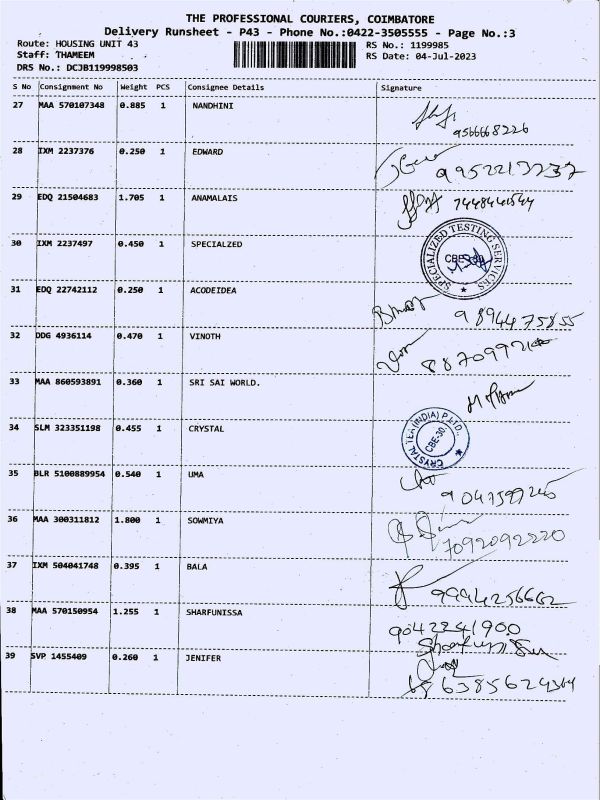 THE PROFESSIONAL COURIERS, COIMBATORE
Delivery Runsheet - P43 - Phone No.:0422-3505555 - Page No.:3
Route: HOUSING UNIT 43 RS No.: 1199985
Staff: THAMEEM RS Date: 04-Jul-2023
DRS No.: DCJB119998503
S No Consignment No Weight PCS Consignee Details Signature
27 MAA 570107348 0.885 1 NANDHINI
9566668226
28 IXM 2237376 0.250 1 EDWARD
9952213237
29 EDQ 21504683 1.705 1 ANAMALAIS
7448441544
30 IXM 2237497 0.450 1 SPECIALZED
SPECIALIZED TESTING SERVICES
CBE-30
31 EDQ 22742112 0.250 1 ACODEIDEA
9894475855
32 DDG 4936114 0.470 1 VINOTH
33 MAA 860593891 0.360 1 SRI SAI WORLD.
34 SLM 323351198 0.455 1 CRYSTAL
CRYSTAL TEA (INDIA) P.LTD.,
CBE-30.
35 BLR 5100889954 0.540 1 UMA
36 MAA 300311812 1.800 1 SOWMIYA
7092092220
37 IXM 504041748 0.395 1 BALA
9994256662
38 MAA 570150954 1.255 1 SHARFUNISSA
9042241900
39 SVP 1455409 0.260 1 JENIFER